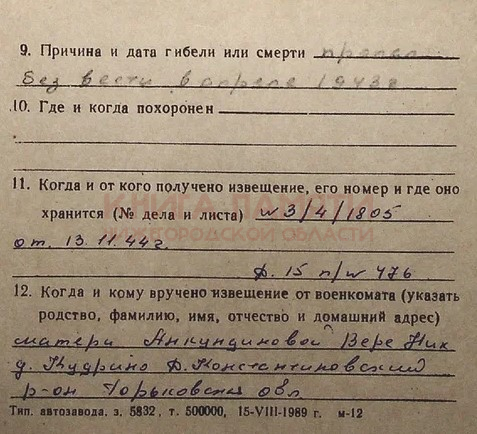 9. Причина и дата гибели или смерти пропал
без вести в апреле 1943г
10. Где и когда похоронен
11. Когда и от кого получено извещение, его номер и где оно
хранится (№ дела и листа) №3/4/1805
КНИГА ПАМЯТИ
НИЖЕГОРОДСКОЙ ОБЛАСТИ
от. 13.11.44г.
д. 15 п/№ 476
12. Когда и кому вручено извещение от военкомата (указать
родство, фамилию, имя, отчество и домашний адрес)
матери Анкундиновой Вере Ник
д. Кудрино Д.Константиновский
р-он Горьковская обл
Тип. автозавода. з. 5832, т. 500000, 15-VIII-1989 г. м-12